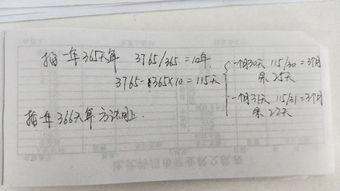 按一年365天算 3765/365=10年
3765-365×10=115天
一个月30天 115/30=3个月
余25天
一个月31天 115/31=3个月
余22天
按一年366天算 方法同上.